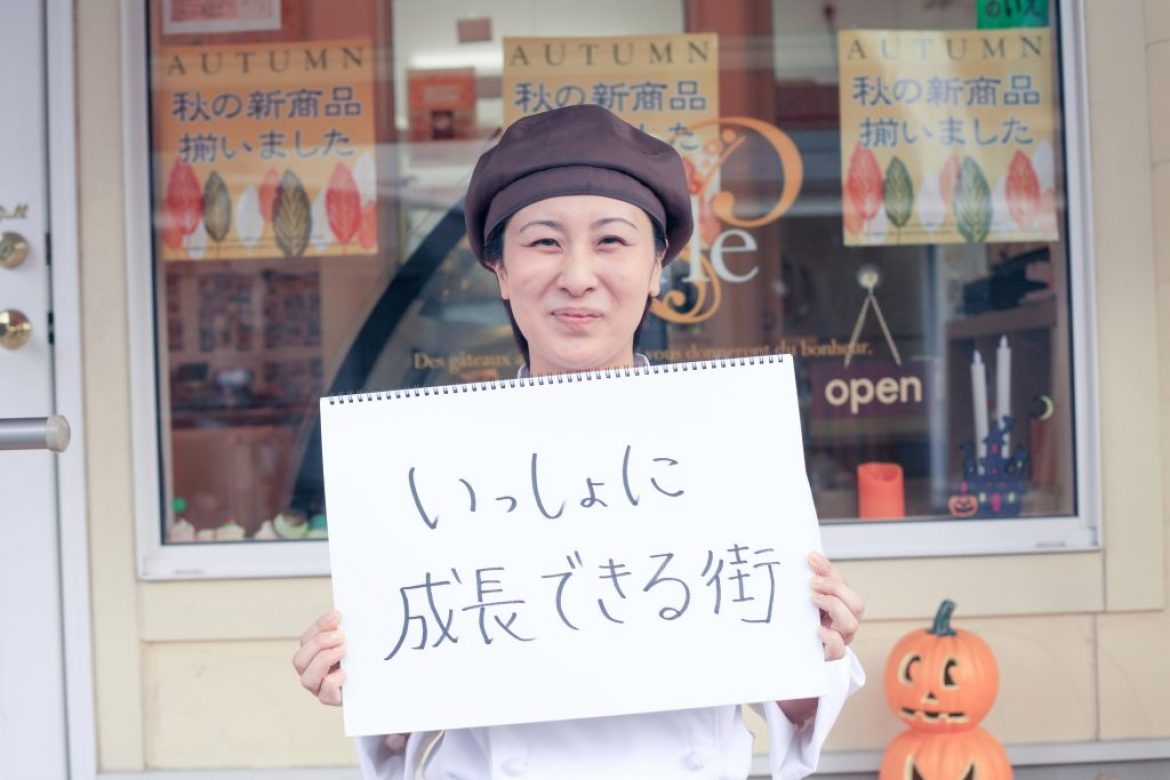 のいえ
AUTUMN
秋の新商品
揃いました
AUTUMN
秋の新商品
した
AUTUMN
秋の新商品
揃いました
le
Des gâteaux
vous donneront du bonheur.
open
いっしょに
成長できる街